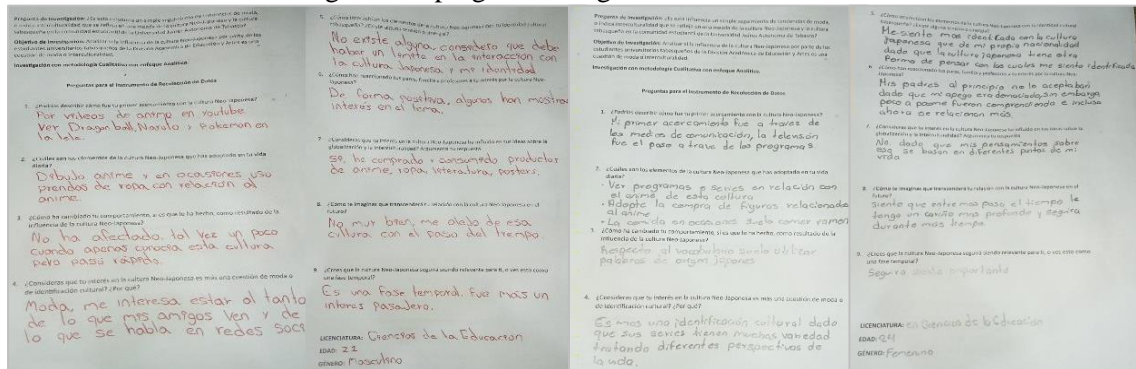 Pregunta de Investigación: ¿Es esta influencia un simple seguimiento de tendencias de moda,
Objetivo de Investigación: Analizar la influencia de la cultura Neo-Japonesa por parte de los
estudiantes universitarios tabasqueños de la División Académica de Educación y Artes es una
cuestión de moda o interculturalidad.
Investigación con metodología Cualitativa con enfoque Analítico.
Preguntas para el Instrumento de Recolección de Datos
1. ¿Podrías describir cómo fue tu primer acercamiento con la cultura Neo-Japonesa?
Por videos de anime en youtube
Ver Dragon ball, Naruto y Pokemon en
la tele.
2. ¿Cuáles son los elementos de la cultura Neo-Japonesa que has adoptado en tu vida
diaria?
Dibujo anime y en ocasiones uso
prendas de ropa con relación al
anime.
3. ¿Cómo ha cambiado tu comportamiento, si es que lo ha hecho, como resultado de la
influencia de la cultura Neo-Japonesa?
No ha afectado, tal vez un poco
cuando apenas conocía esta cultura
pero pasó rápido.
4. ¿Consideras que tu interés en la cultura Neo-Japonesa es más una cuestión de moda o
de identificación cultural? ¿Por qué?
Moda, me interesa estar al tanto
de lo que mis amigos ven y de
lo que se habla en redes soci
No existe alguna, considero que debe
haber un límite en la interacción con
la cultura Japonesa y mi identidad
6. ¿Cómo han reaccionado tus pares, familia y profesores a tu interés por la cultura Neo-
Japonesa?
De forma positiva, algunos han mostrado
interés en el tema.
7. ¿Consideras que tu interés en la cultura Neo-Japonesa ha influido en tus ideas sobre la
globalización y la interculturalidad? Argumenta tu respuesta
Si, he comprado y consumido productos
de anime, ropa, literatura, posters.
8. ¿Cómo te imaginas que trascenderá tu relación con la cultura Neo-Japonesa en el
futuro?
No muy bien, me alejo de esa
cultura con el paso del tiempo.
9. ¿Crees que la cultura Neo-Japonesa seguirá siendo relevante para ti, o ves esto como
una fase temporal?
Es una fase temporal. Fue más un
interes pasajero.
LICENCIATURA: Ciencias de la Educación
EDAD: 21
GÉNERO: Masculino
Pregunta de Investigación: ¿Es esta influencia un simple seguimiento de tendencias de moda,
o indica interculturalidad que se refleja en una mezcla de la cultura Neo-Japonesa y la cultura
tabasqueña en la comunidad estudiantil de la Universidad Juárez Autónoma de Tabasco?
Objetivo de Investigación: Analizar si la influencia de la cultura Neo-Japonesa por parte de los
estudiantes universitarios tabasqueños de la División Académica de Educación y Artes es una
cuestión de moda o interculturalidad.
Investigación con metodología Cualitativa con enfoque Analítico.
Preguntas para el Instrumento de Recolección de Datos
1. ¿Podrías describir cómo fue tu primer acercamiento con la cultura Neo-Japonesa?
Mi primer acercamiento fue a traves de
los medios de comunicación, la televisión
fue el paso a traves de los programas.
2. ¿Cuáles son los elementos de la cultura Neo-Japonesa que has adoptado en tu vida
diaria?
• Ver programas o series en relación con
el anime de esta cultura
• Adopte la compra de figuras relacionadas
al anime
• La comida en ocasiones suelo comer ramen
3. ¿Cómo ha cambiado tu comportamiento, si es que lo ha hecho, como resultado de la
influencia de la cultura Neo-Japonesa?
Respecto al vocabulario suelo utilizar
palabras de origen japones
4. ¿Consideras que tu interés en la cultura Neo-Japonesa es más una cuestión de moda o
de identificación cultural? ¿Por qué?
Es mas una identificación cultural dado
que sus series tienen muchas variedad
tratando diferentes perspectivas de
la vida.
Me siento mas identificada con la cultura
japonesa que de mi propia nacionalidad
dado que la cultura japonesa tiene otra
forma de pensar con los cuales me siento identificada
Mis padres al principio no lo aceptaban
dado que mi apego era demasiado, sin embargo
poco a poco me fueron comprendiendo e inclusa
ahora se relacionan más.
7. ¿Consideras que tu interés en la cultura Neo-Japonesa ha influido en tus ideas sobre la
globalización y la interculturalidad? Argumenta tu respuesta
No, dado que mis pensamientos sobre
eso se basan en diferentes puntos de mi
vida
8. ¿Cómo te imaginas que trascenderá tu relación con la cultura Neo-Japonesa en el
futuro?
Siento que entre mas pase el tiempo le
tengo un cariño mas profundo y seguira
durante mas tiempo.
9. ¿Crees que la cultura Neo-Japonesa seguirá siendo relevante para ti, o ves esto como
una fase temporal?
Seguira siendo importante
LICENCIATURA: en Ciencias de la Educación
EDAD: 24
GÉNERO: Femenino